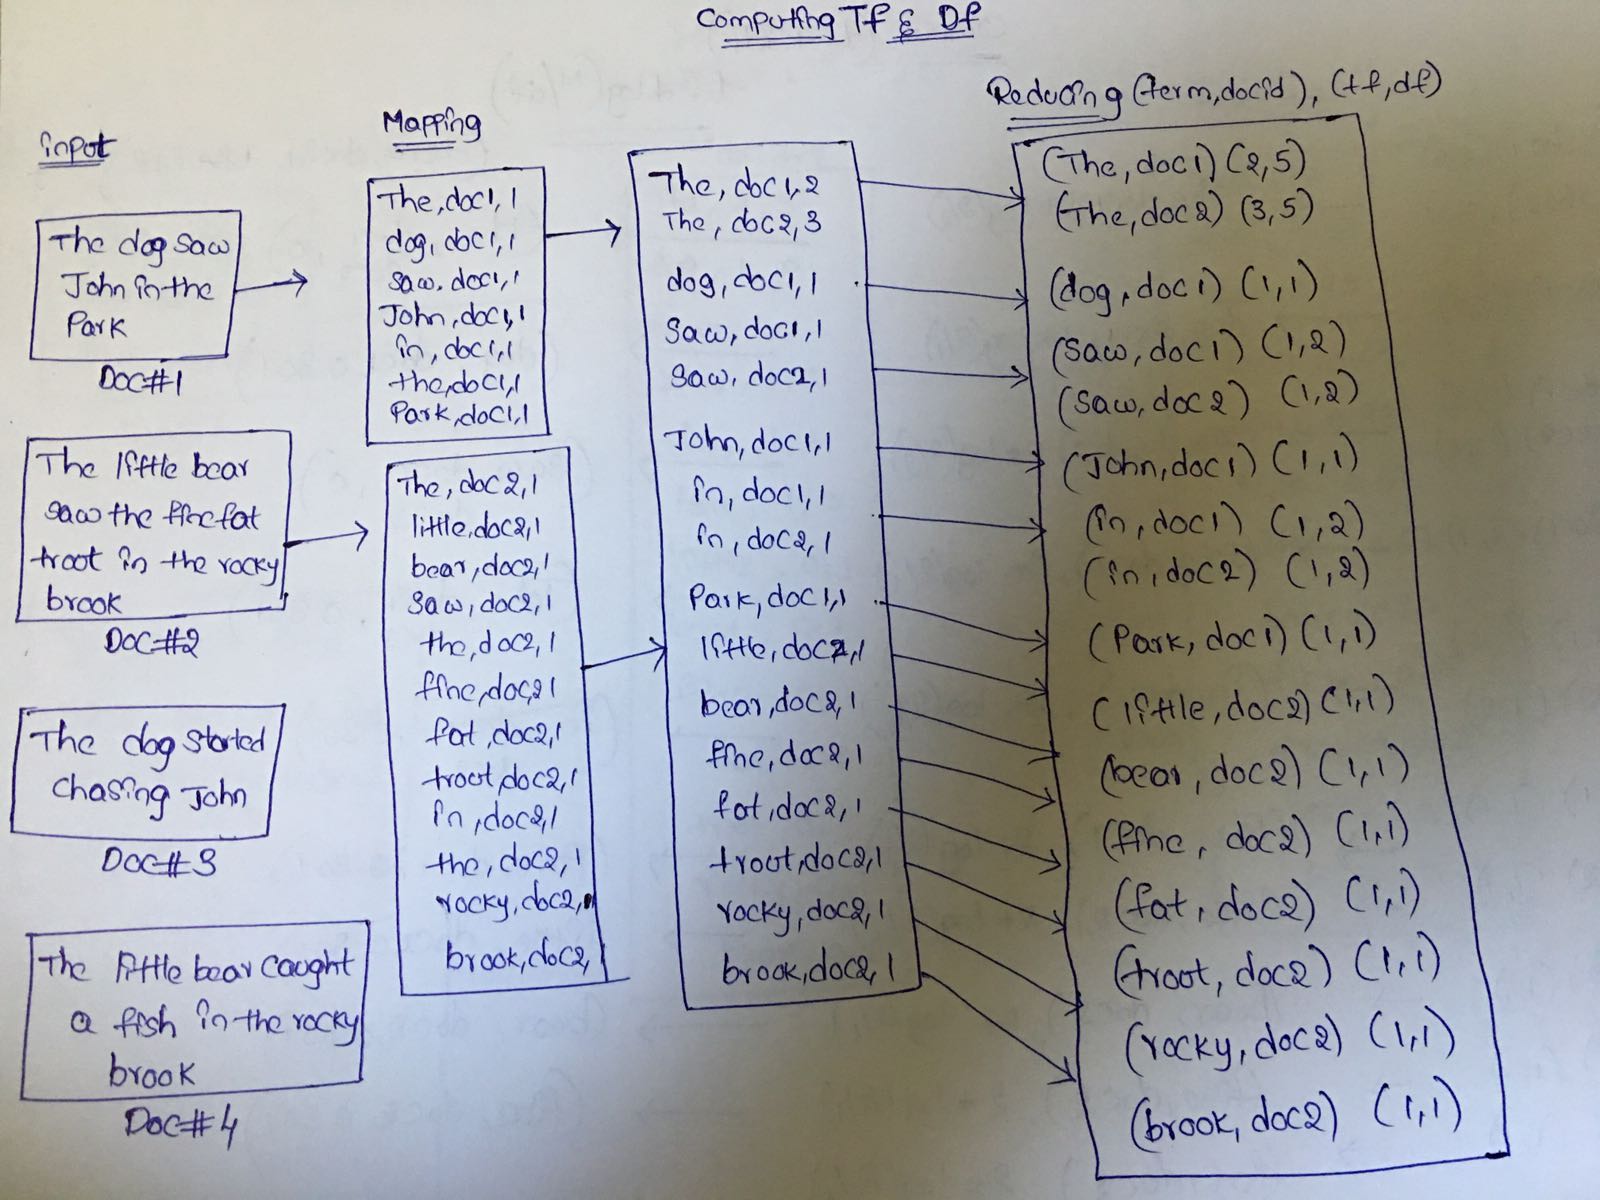 Computing Tf & Df
input
The dog saw
John in the
Park
Doc#1
The little bear
saw the fine fat
troot in the rocky
brook
Doc#2
The dog started
chasing John
Doc#3
The little bear caught
a fish in the rocky
brook
Doc#4
Mapping
The, doc1, 1
dog, doc1, 1
saw, doc1, 1
John, doc1, 1
in, doc1, 1
the, doc1, 1
Park, doc1, 1
The, doc2, 1
little, doc2, 1
bear, doc2, 1
saw, doc2, 1
the, doc2, 1
fine, doc2, 1
fat, doc2, 1
troot, doc2, 1
in, doc2, 1
the, doc2, 1
rocky, doc2, 1
brook, doc2, 1
The, doc1, 2
The, doc2, 3
dog, doc1, 1
Saw, doc1, 1
Saw, doc2, 1
John, doc1, 1
in, doc1, 1
in, doc2, 1
Park, doc1, 1
little, doc2, 1
bear, doc2, 1
fine, doc2, 1
fat, doc2, 1
troot, doc2, 1
rocky, doc2, 1
brook, doc2, 1
Reducing (term, docid), (tf, df)
(The, doc1) (2,5)
(The, doc2) (3,5)
(dog, doc1) (1,1)
(saw, doc1) (1,2)
(saw, doc2) (1,2)
(John, doc1) (1,1)
(in, doc1) (1,2)
(in, doc2) (1,2)
(Park, doc1) (1,1)
(little, doc2) (1,1)
(bear, doc2) (1,1)
(fine, doc2) (1,1)
(fat, doc2) (1,1)
(troot, doc2) (1,1)
(rocky, doc2) (1,1)
(brook, doc2) (1,1)